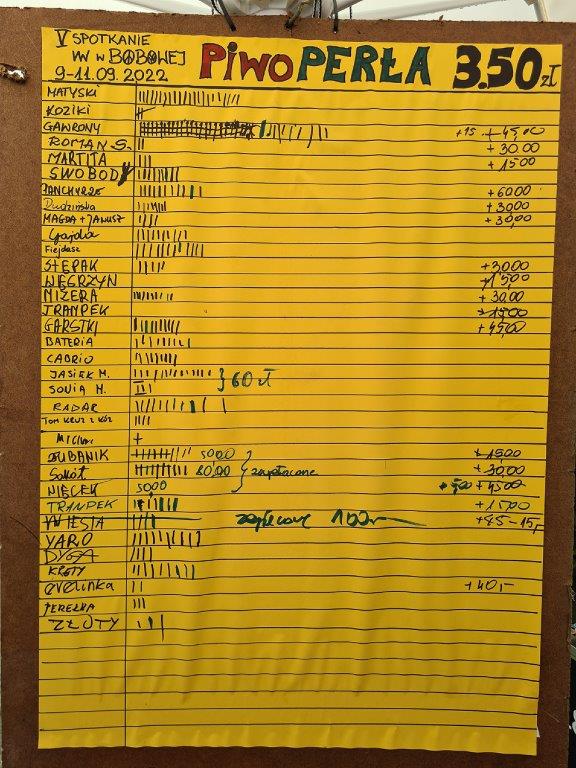 V SPOTKANIE
VW W BOBOWEJ
9-11.09.2022
PIWO PERŁA 3.50 zł
MATYSKI
KOZIKI
GAWRONY +15 +45,00
ROMAN S. +30.00
MARTITA +15.00
SWOBODY
PANCHYRZE +60.00
Dudzińska +30,00
MAGDA + JANUSZ +30,00
Gajda
Fiejdasz
STĘPAK +30,00
WĘGRZYN +15,00
MIZERA +30.00
TRANPEK +15,00
GARSTKI +45,00
BATERIA
CABRIO
JASIEK M.
60 zł
SONIA M.
RADAR
MICHAŁ
DUBANIK 50,00 +15,00
Sokół 80,00 zapłacone +30,00
NIĘCEK 50,00 +45,00
TRANPEK +15,00
WIESIA zapłacone 100 +45-15,-
YARO
DYGA
KRĘTY
evelinka +40,-
PEREŁKA
ZŁOTY